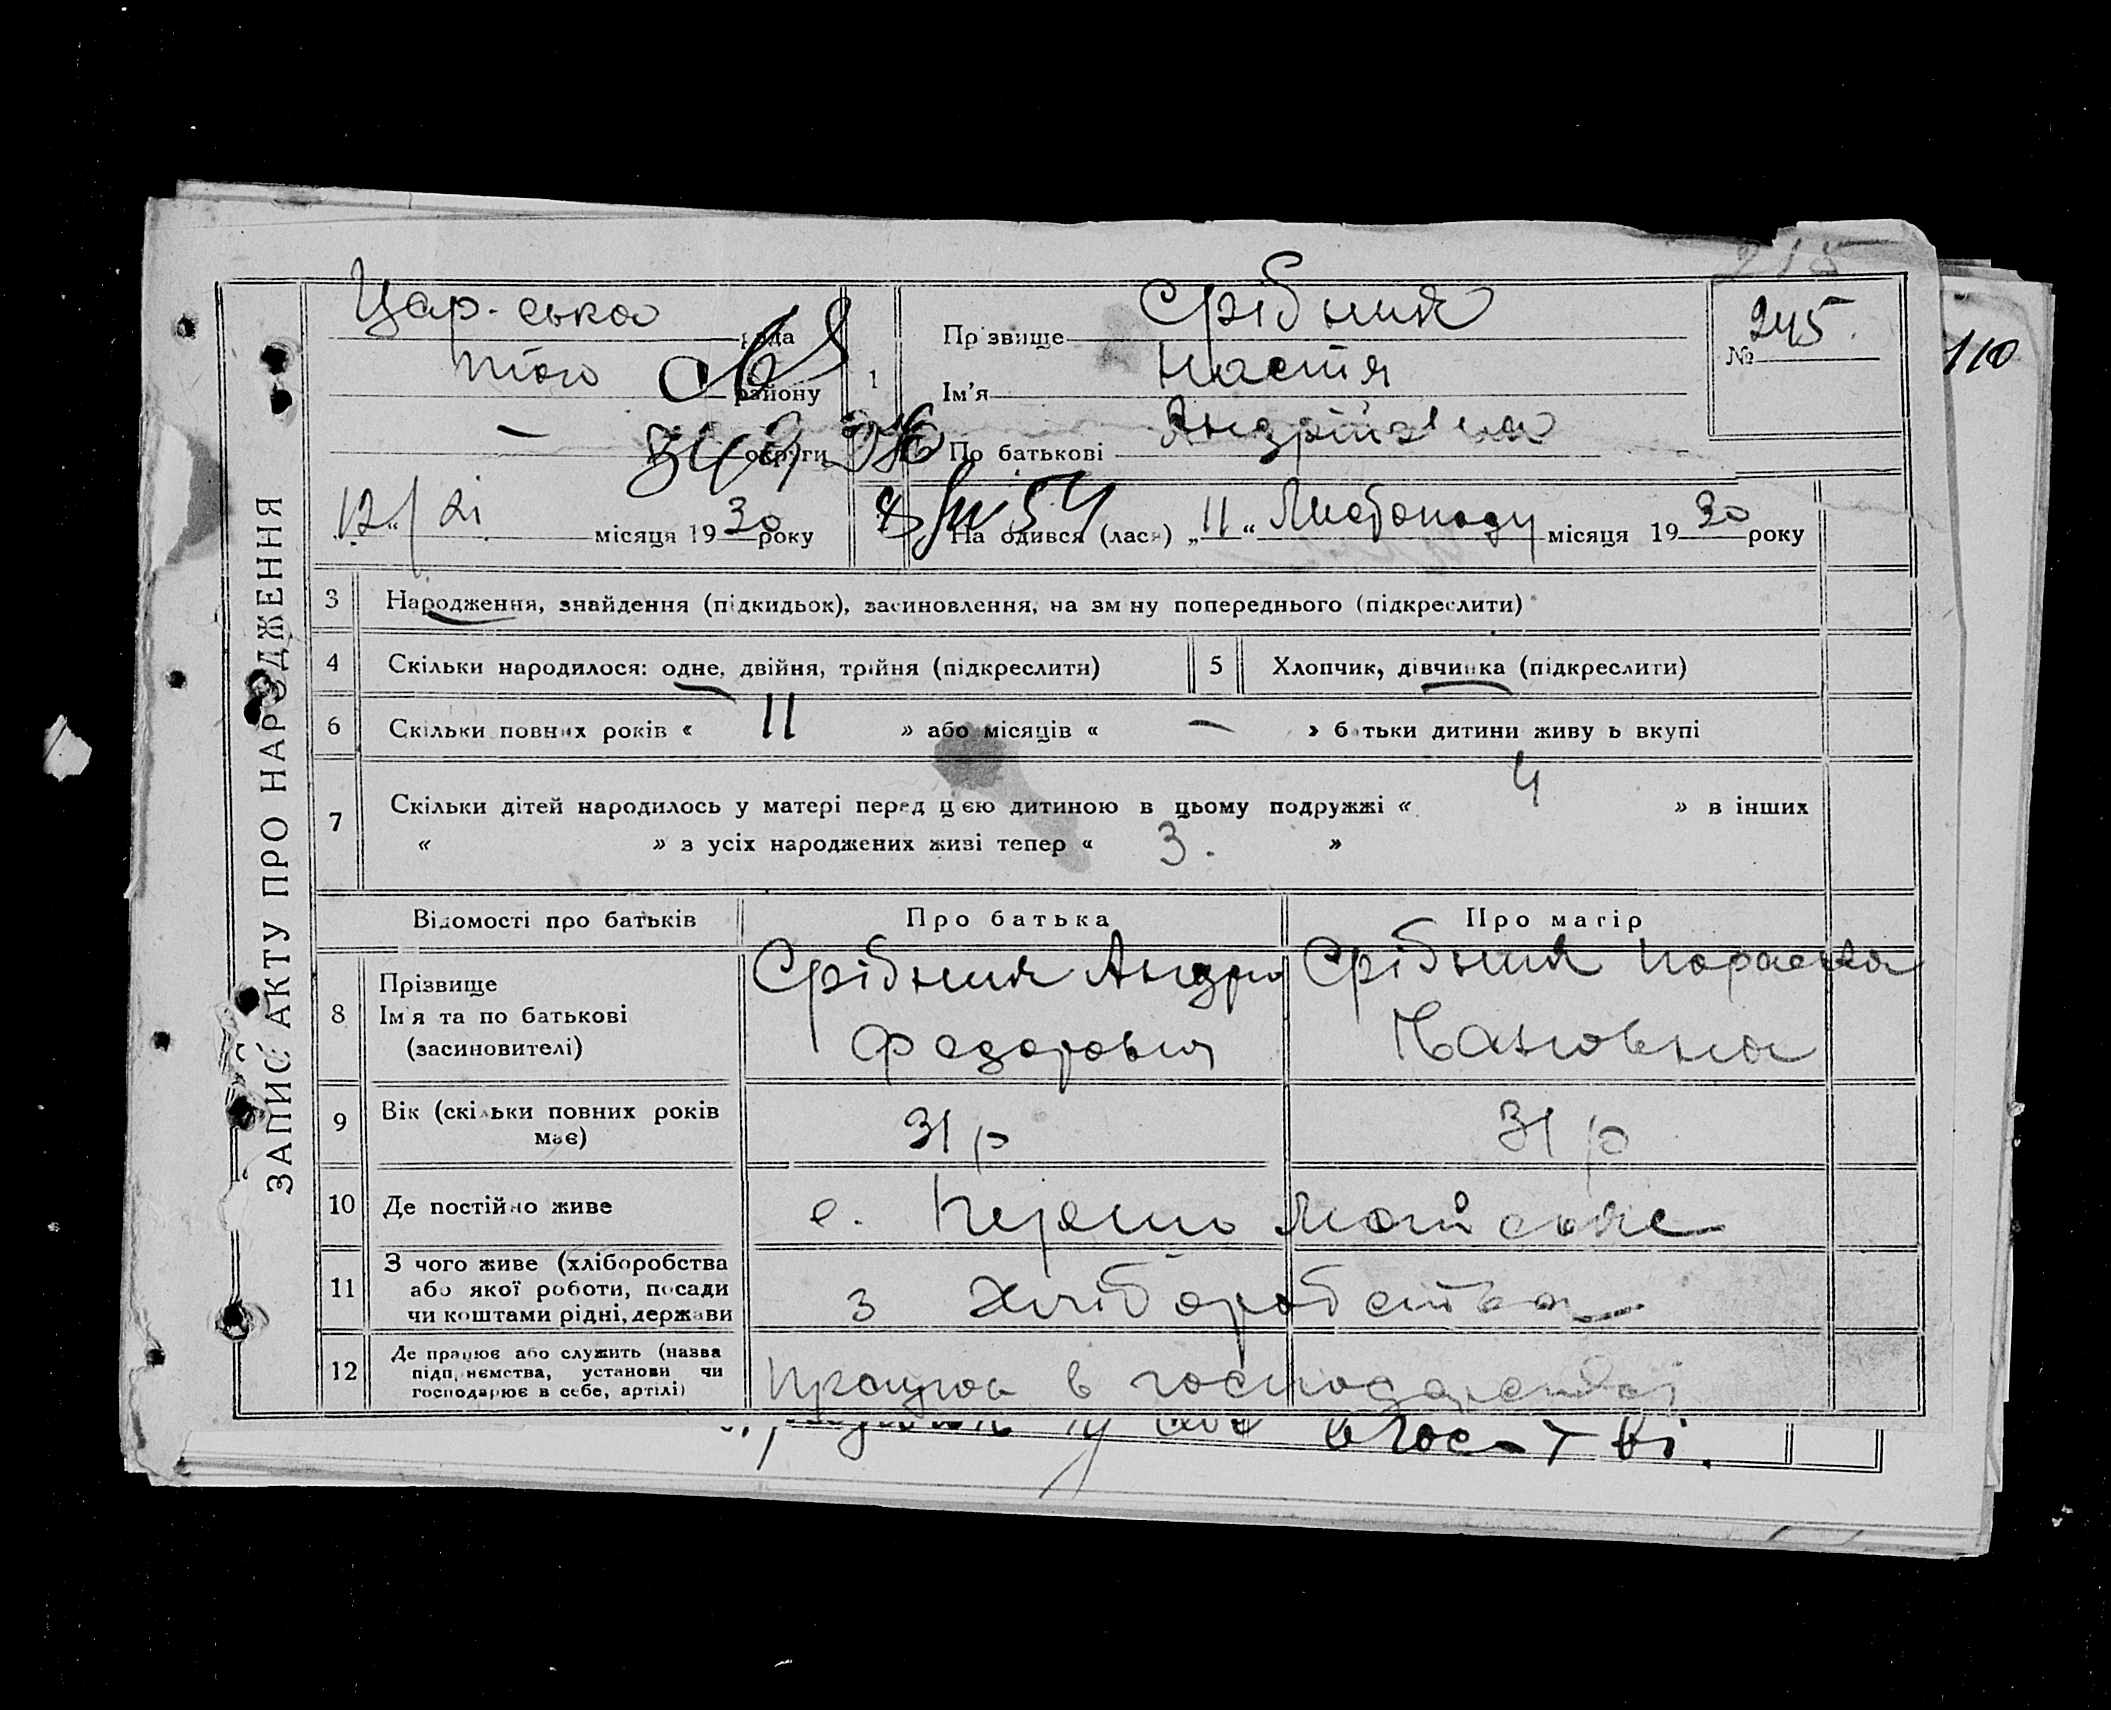 ЗАПИС АКТУ ПРО НАРОДЖЕННЯ
215
Цар-ська рада
того району
— округи
12/XI місяця 1930 року
1
Прізвище Срібния
Ім'я Настя
По батькові Андріївна
№ 245.
110
Народився (лася) „11“ Листопаду місяця 1930 року
3 Народження, знайдення (підкидьок), засиновлення, на зміну попереднього (підкреслити)
4 Скільки народилося: одне, двійня, трійня (підкреслити) 5 Хлопчик, дівчинка (підкреслити)
6 Скільки повних років « 11 » або місяців « — » батьки дитини живуть вкупі
7 Скільки дітей народилось у матері перед цією дитиною в цьому подружжі « 4 » в інших
« » з усіх народжених живі тепер « 3. »
Відомості про батьків Про батька Про матір
8 Прізвище
Ім'я та по батькові
(засиновителі)
Срібния Андри
Федоровия
Срібния Параска
Пановна
9 Вік (скільки повних років
має)
31 р 31 р
10 Де постійно живе с. Першо Майське
11 З чого живе (хліборобства
або якої роботи, посади
чи коштами рідні, держави
з Хліборобства
12 Де працює або служить (назва
підприємства, установи чи
господарює в себе, артілі)
Працюю в господарстві